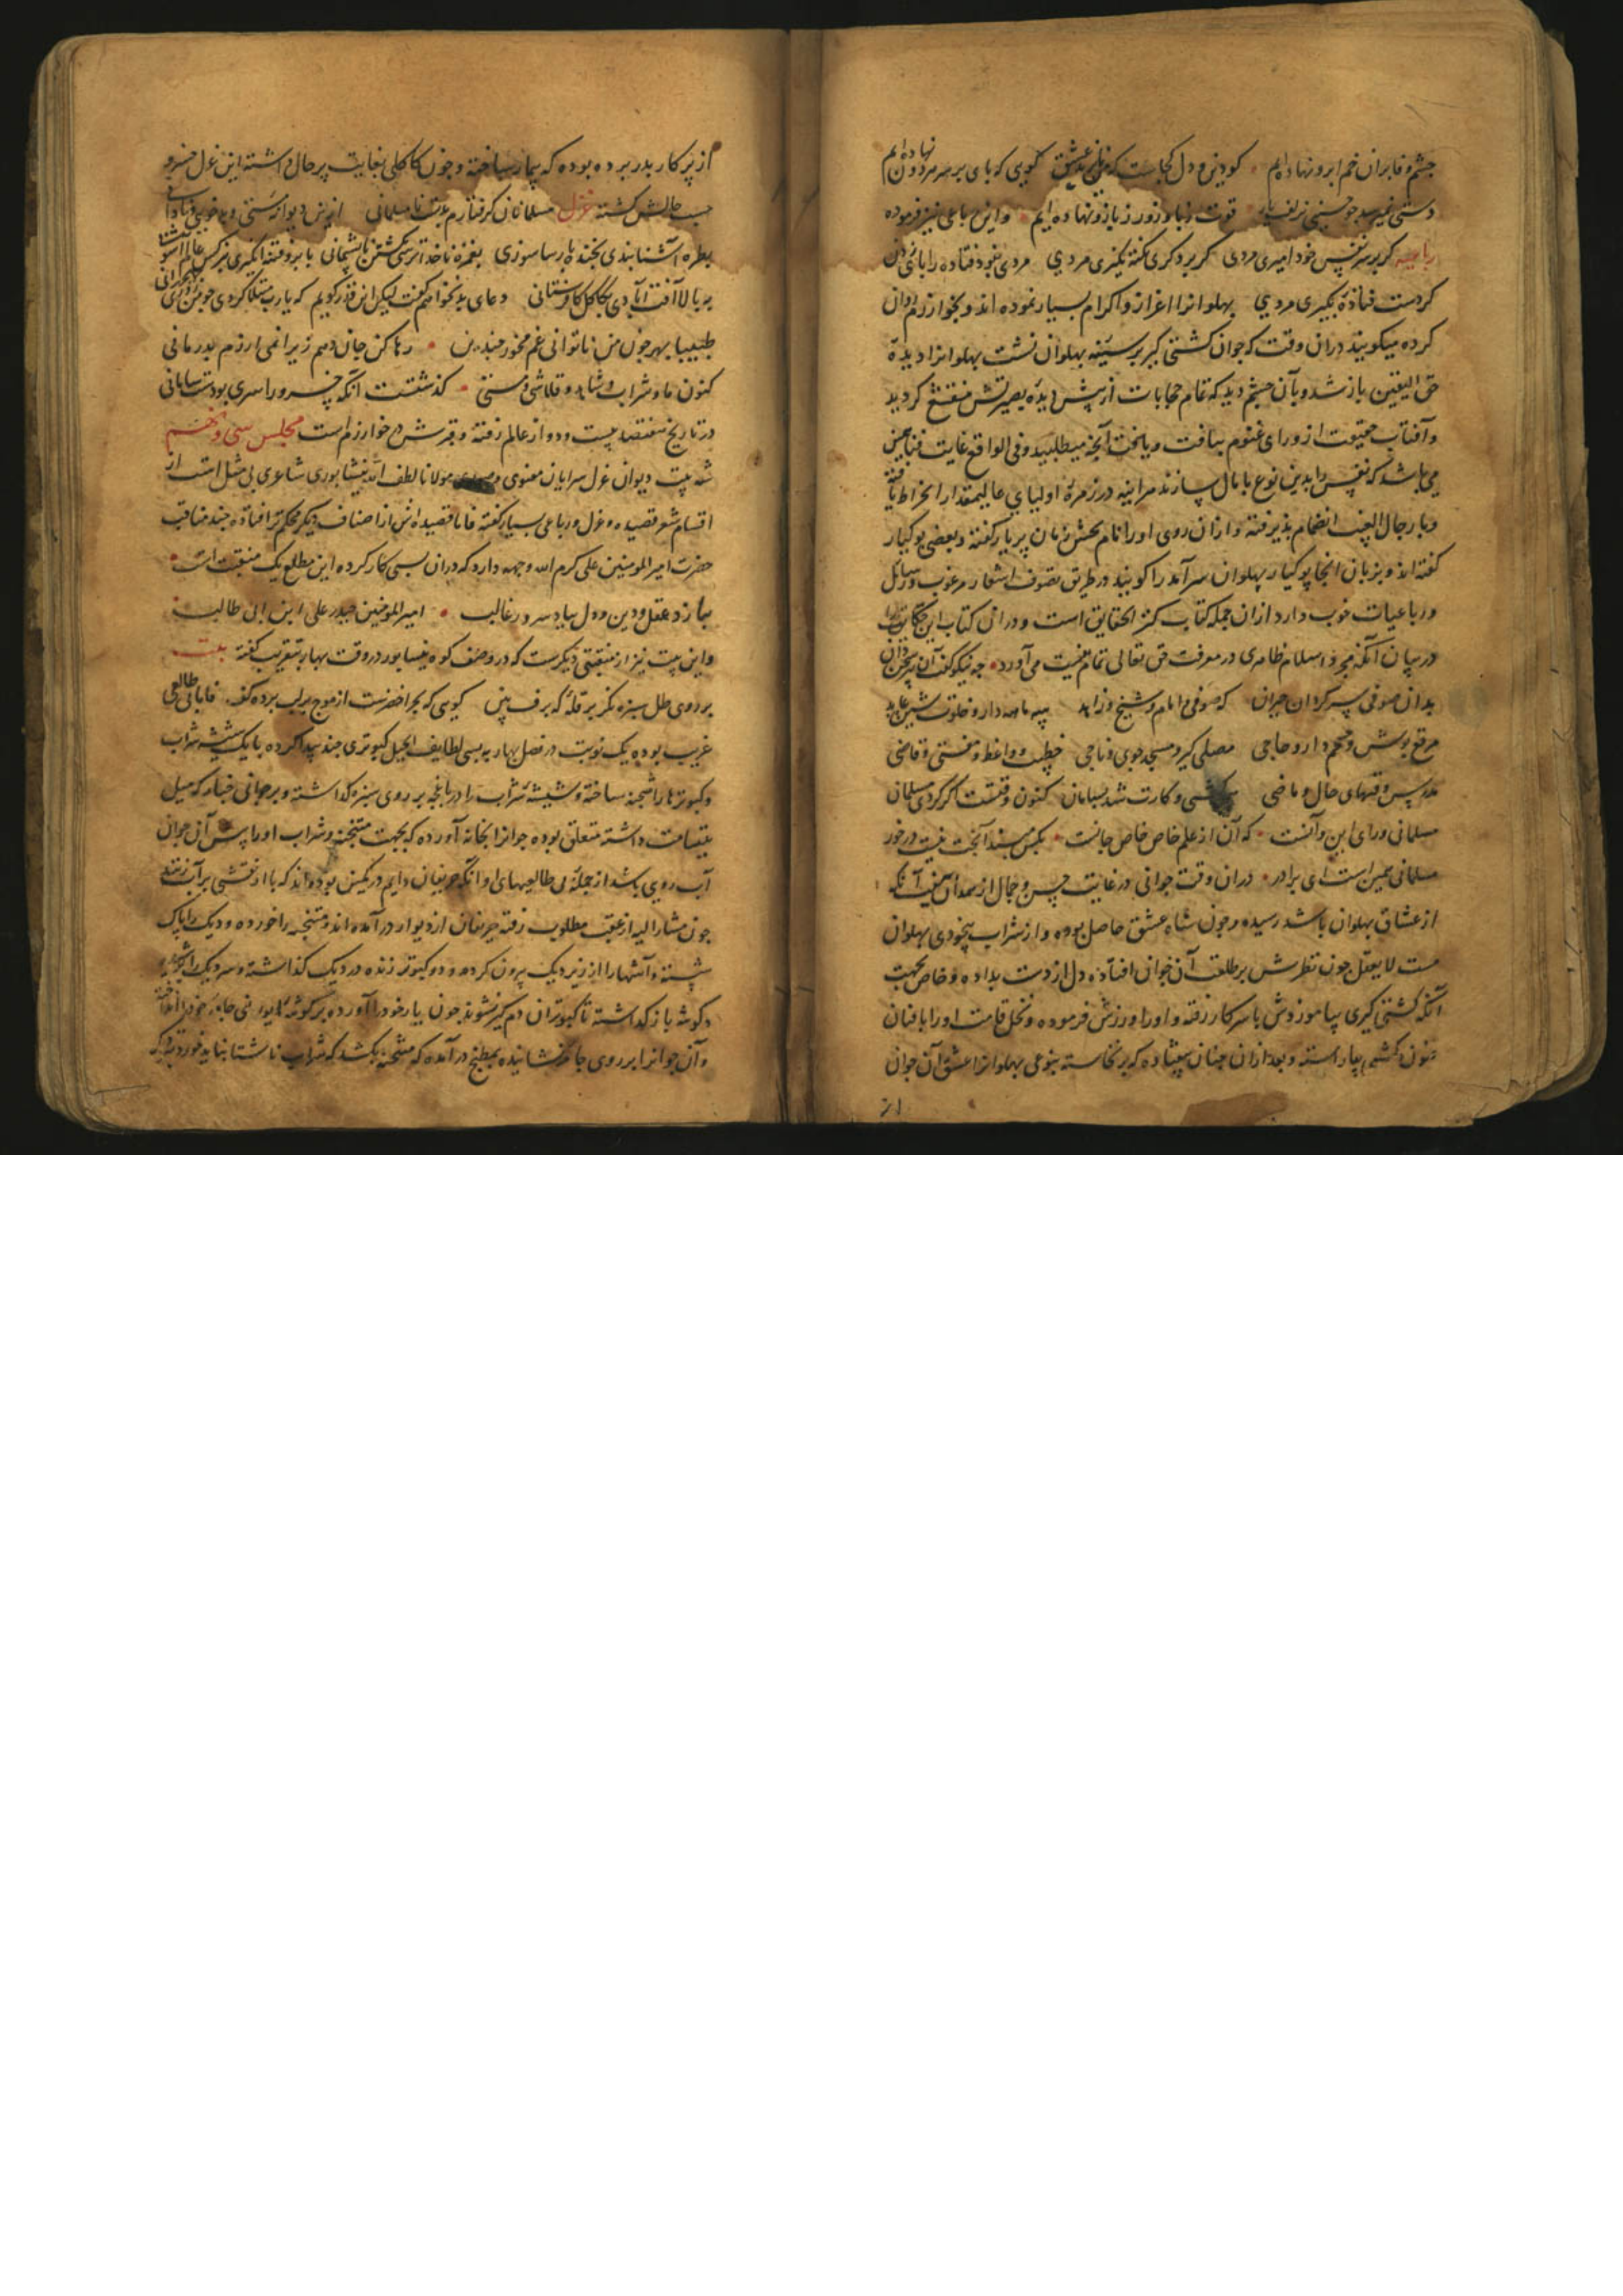 چشم وفا بران خم ابرو نهاده ایم • کو دین و دل کجاست که عشق گویی که پای بر سر نهاده ایم
دستی نمیرسد چو حسینی بزلف یار قوت رها و زور ز بازو نهاده ایم • و این رباعی نیز فرموده
رباعیه گر بر سر نفس خود امیری مردی گر بر دگری نکته نگیری مردی مردی نبود فتاده را پای زدن
گر دست فتادهٔ بگیری مردی پهلوانرا اعزاز و اکرام بسیار نموده اند و بخوارزم روان
کرده میکویند دران وقت که جوان کشتی گیر بر سینه پهلوان نشست پهلوانرا دیدهٔ
حق الیقین باز شد و بآن چشم دید که تمام حجابات از پیش دیدهٔ بصیرتش منقشع گردید
و آفتاب حقیقت از ورای غیوم بتافت و یافت آنچه میطلبید و فی الواقع غایت فنا همین
می باشد که نفس را بدین نوع پامال سازند هرآینه در زمرهٔ اولیای عالیمقدار انخراط یافته
و با رجال الغیب انضمام پذیرفته و ازان روی او را نام بخش زبان پریار گفته و بعضی پوکیار
گفته اند و بزبان انجا پوکیار پهلوان سرآمد را گویند در طریق تصوف اشعار مرغوب و رسائل
و رباعیات خوب دارد ازان جمله کتاب کنز الحقایق است و دران کتاب این حکایت را
در بیان آنکه مجرد اسلام ظاهری در معرفت حق تعالی تمام نیست می آورد • چه نیکو گفت آن پیر سخن دان
بدان صوفی سرگردان حیران که صوفی و امام و شیخ و زاهد سیه جامه دار و خلوت نشین عابد
مرقع پوش و محرم دار و حاجی مصلی گیر و مسجد جوی و ناجی خطیب و واعظ و مفتی و قاضی
مدرس وقتهای حال و ماضی شدی و کارت شد بسامان کنون وقتست اگر گردی مسلمان
مسلمانی ورای این و آنست • که آن از علم خاص خاص جانست • بکس مپسند آنچت نیست در خور
مسلمانی همین است ای برادر • دران وقت جوانی در غایت حسن و جمال از همدان بنیت آنکه
از عشاق پهلوان باشد رسیده و چون شاه عشق حاصل بوده و از شراب بیخودی پهلوان
مست لا یعقل چون نظرش بر طلعت آن جوان افتاده دل از دست بداده و خاص بجهت
آنکه کشتی گیری بیاموزدش با سر کار رفته و او را ورزش فرموده و نخل قامت او را بافنان
فنون کشتی بیاراسته و بعد ازان چنان بیفتاده که برنخاسته بنوعی پهلوانرا عشق آن جوان
از پر کار بدر برده بوده که بیمار ساخته و چون کاکلی بغایت پرحال داشته این غزل خسرو
حسب حالش گشته غزل مسلمانان گرفتارم بدست نامسلمانی ازین دیوانه مستی
بطره آشنا بندی بخنده پارسا سوزی بغمزه ناخدا ترسی بکشتن ناپشیمانی بابرو فتنه انگیزی بنرگس عالم آشوبی
به بالا آفت آبادی بکاکل کافرستانی دعای بد نخواهم گفت لیکن این قدر گویم که یارب مبتلا گردی چو من
طبیبا بهر چون من ناتوانی غم مخور چندین • رها کن جان دهم زیرا نمی ارزم بدرمانی
کنون ما و شراب و شاهد و قلاشی و مستی • گذشتست آنکه خسرو را سری بودست سامانی
در تاریخ هفتصد بیست و دو از عالم رفته و قبرش در خوارزم است مجلس سی و نهم
شه بیت دیوان غزل سرایان معنوی مولانا لطف الله نیشابوری شاعری بی مثل است از
اقسام شعر قصیده و غزل و رباعی بسیار گفته فاما قصیده اش از اصناف دیگر محکم تر افتاده چند مناقب
حضرت امیر المومنین علی کرم الله وجهه دارد که دران بسی کار کرده این مطلع یک منقبت است •
بنازد عقل و دین و دل بیاد سرور غالب • امیر المومنین حیدر علی ابن ابی طالب
و این بیت نیز از منقبتی دیگرست که در وصف کوه نیشابور در وقت بهار بتقریب گفته بیت
بر روی طل سبزه نگر بر قله که برف بین گویی که بحر اخضرست از موج بر لب برده کف • فاما بی طالعی
غریب بوده یک نوبت در فصل بهار به بسی لطایف الحیل کبوتری چند پیدا کرده با یک شیشه شراب
و کبوترها را متنجنه ساخته و شیشه شراب را در باغچه بر روی سبزه گذاشته و بر جوانی خباز که میل
بتیتمامت داشته متعلق بوده جوانرا بخانه آورده که بجهت متنجنه و شراب او را پیش آن جوان
آب روی باشد از جمله بی طالعیهای او آنکه حریفان دایم در کمین بوده اند که با او نقشی برآب زنند
چون مشار الیه از عقب مطلوب رفته حریفان از دیوار درآمده اند و متنجنه را خورده و دیک را پاک
شسته و آتشها را از زیر دیک بیرون کرده و دو کبوتر زنده در دیک گذاشته و سر دیک را
و گوشه باز گذاشته تا کبوتران دم گیر نشوند چون یار خود را آورده بر گوشهٔ
و آن جوانرا بر روی جا بنشانیده بمطبخ درآمده که متنجنه بکشد که شراب ناشتا نباید خورد